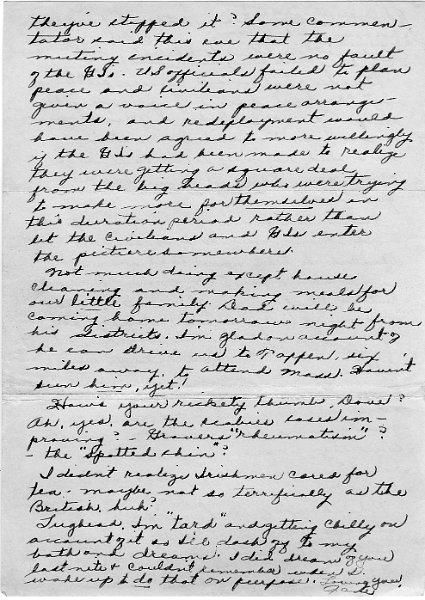 they've stopped it? Some commen-
tator said this eve that the
mutiny incidents were no fault
of the GIs. US officials failed to plan
peace and civilians were not
given a voice in peace arrange-
ments, and redeployment would
have been agreed to more willingly
if the GIs had been made to realize
they were getting a square deal
from the big heads who were trying
to make more for themselves in
this duration period rather than
let the civilians and GIs enter
the picture somewhere.
Not much doing except house
cleaning and making meals for
our little family. Dad will be
coming home tomorrow night from
his Districts. I'm glad on account of
he can drive us to Tappen, six
miles away, to attend Mass. Haven't
seen him, yet!
How's your rickety thumb, Dove?
Ah, yes, are the scabies cases im-
proving? - "rheumatism"?
- the "Spotted skin"?
I didn't realize Irishmen cared for
tea - maybe not so terrifically as the
British, huh?
I'm "tard" and getting chilly on
account of it so I'll dash off to my
bath and dreams. I did dream of you
last nite & couldn't remember when I
woke up to do that on purpose. Loving you,